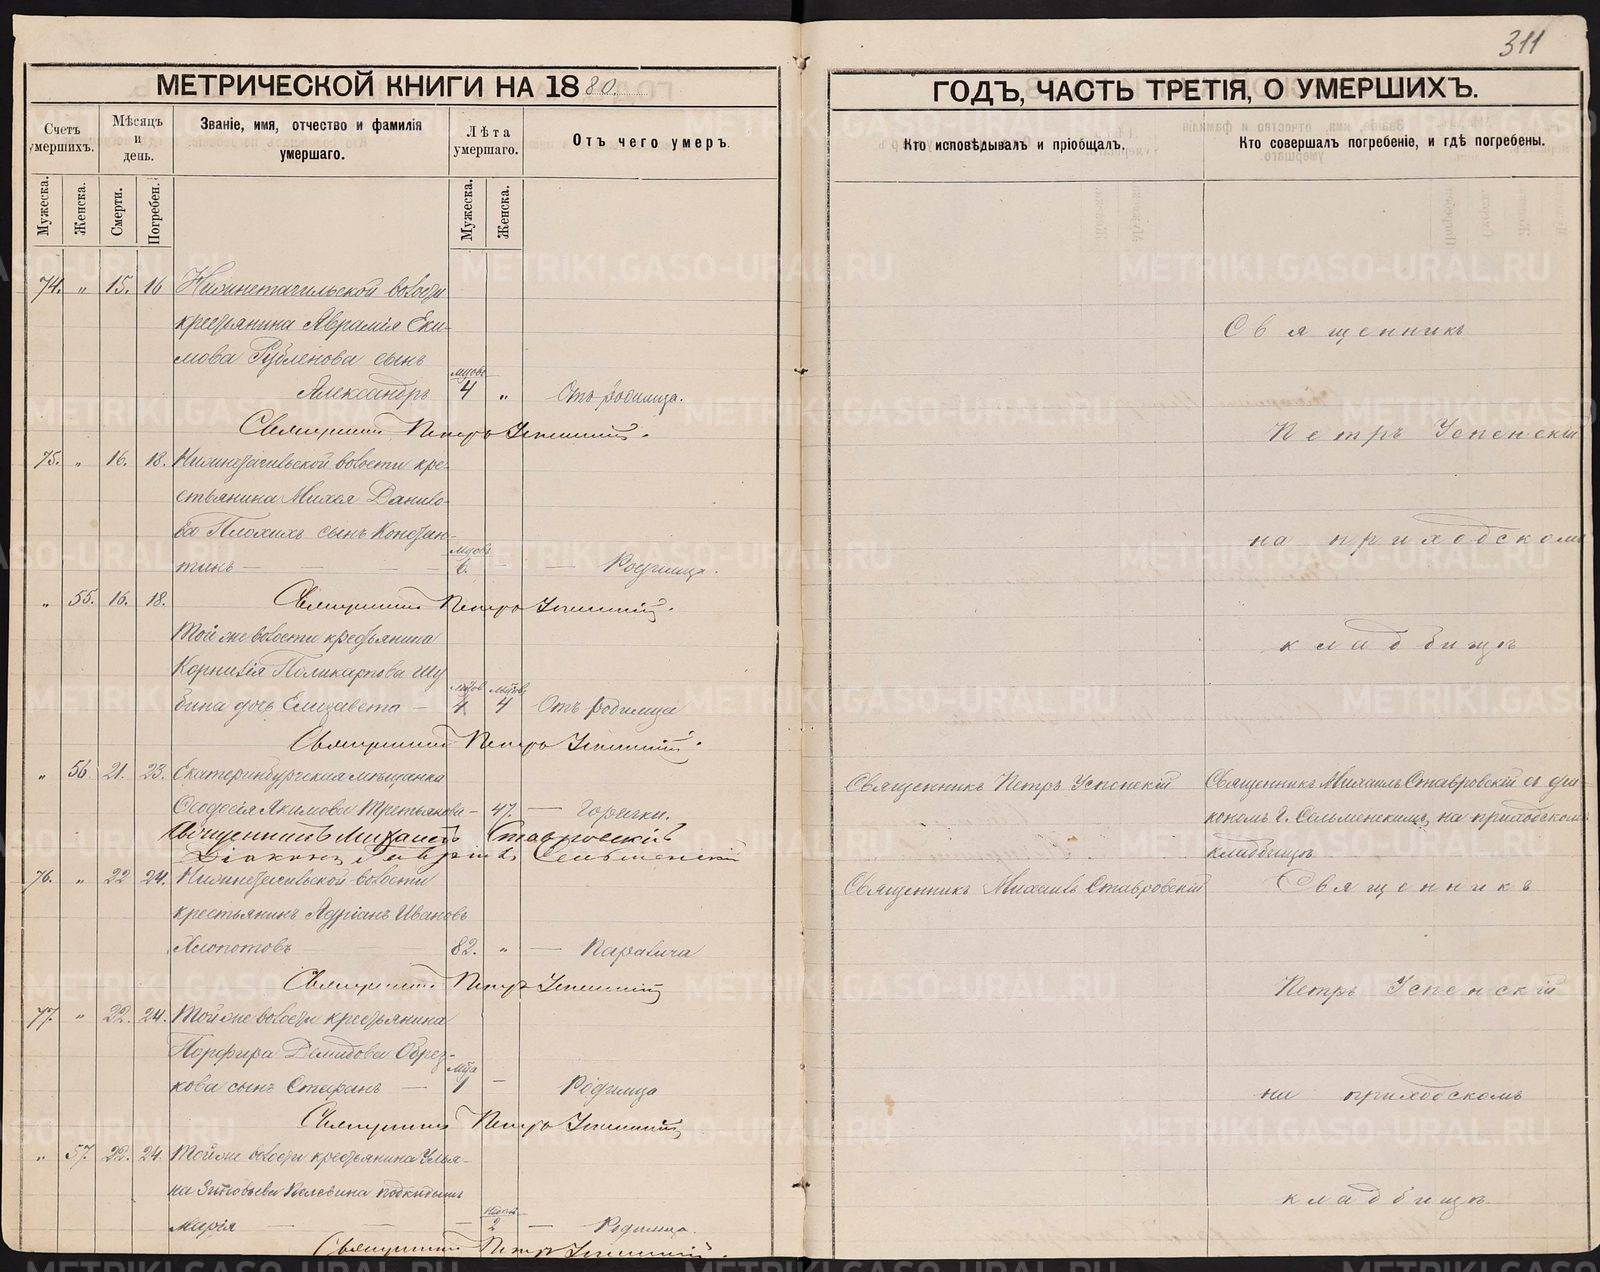 311
МЕТРИЧЕСКОЙ КНИГИ НА 1880.
Счетъ умершихъ.
Мѣсяцъ и день.
Званіе, имя, отчество и фамилія умершаго.
Лѣта умершаго.
Отъ чего умеръ.
Мужеска.
Женска.
Смерти.
Погребен.
Мужеска.
Женска.
74. " 15. 16 Нижнетагильской волости
крестьянина Аврамія Еки-
мова Рубленова сынъ
Александръ 4 " Отъ родимца.
Священникъ Петръ Успенскій.
75. " 16. 18. Нижнетагильской волости кре-
стьянина Михея Данило-
ва Плохихъ сынъ Констан-
тинъ — 6. — Родимца.
Священникъ Петръ Успенскій.
" 55. 16. 18.
Той же волости крестьянина
Корнилія Поликарпова Шу
бина дочь Елизавета — 4 Отъ родимца
Священникъ Петръ Успенскій.
" 56 21. 23. Екатеринбургская мѣщанка
Ѳеодосія Якимова Третьякова — 47. — Горячки.
Священникъ Михаилъ Ставровскій
Діаконъ Гавріилъ
76. " 22 24. Нижнетагильской волости
крестьянинъ Адріанъ Ивановъ
Хлопотовъ 82. " — Паралича
Священникъ Петръ Успенскій
77. " 22. 24. Той же волости крестьянина
Порфира Демидова Обрез-
кова сынъ Стефанъ — 1 — Родимца
Священникъ Петръ Успенскій
" 57 22. 24. Той же волости крестьянина Улья-
на Зиновьева подкидышъ
Марія — 2 — Родимца.
Священникъ Петръ Успенскій.
ГОДЪ, ЧАСТЬ ТРЕТІЯ, О УМЕРШИХЪ.
Кто исповѣдывалъ и пріобщалъ.
Кто совершалъ погребеніе, и гдѣ погребены.
Священникъ
Петръ Успенскій
на приходскомъ
кладбищѣ
Священникъ Петръ Успенскій
Священникъ Михаилъ Ставровскій съ діа
кономъ Г. на приходскомъ
кладбищѣ
Священникъ Михаилъ Ставровскій
Священникъ
Петръ Успенскій
на приходскомъ
кладбищѣ
METRIKI.GASO-URAL.RU